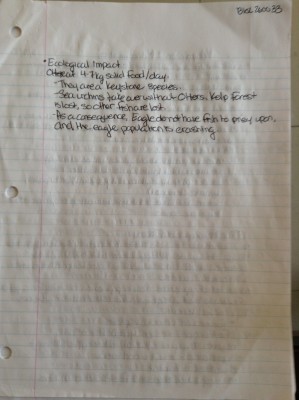 • Ecological Impact
Otter eat 4-7kg solid food/day.
- They are a keystone species.
- Sea urchins take over without Otters. Kelp forest
is lost, so other fish are lost.
- As a consequence, Eagle do not have fish to prey upon,
and the eagle population is crashing